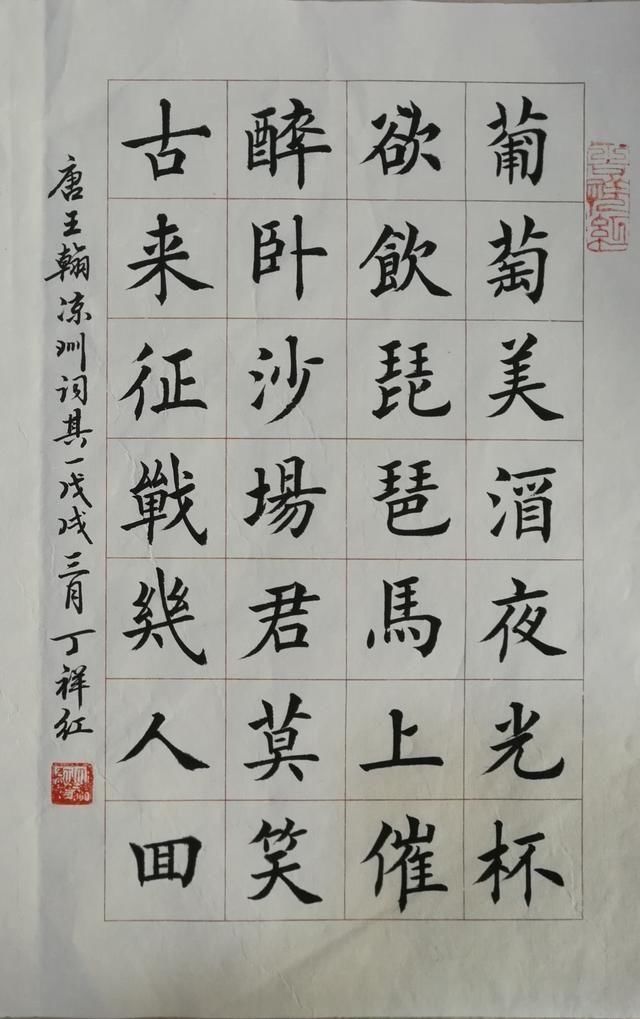 葡萄美酒夜光杯
欲飲琵琶馬上催
醉卧沙場君莫笑
古来征戰幾人回
唐王翰凉州词其一戊戌三月丁祥红